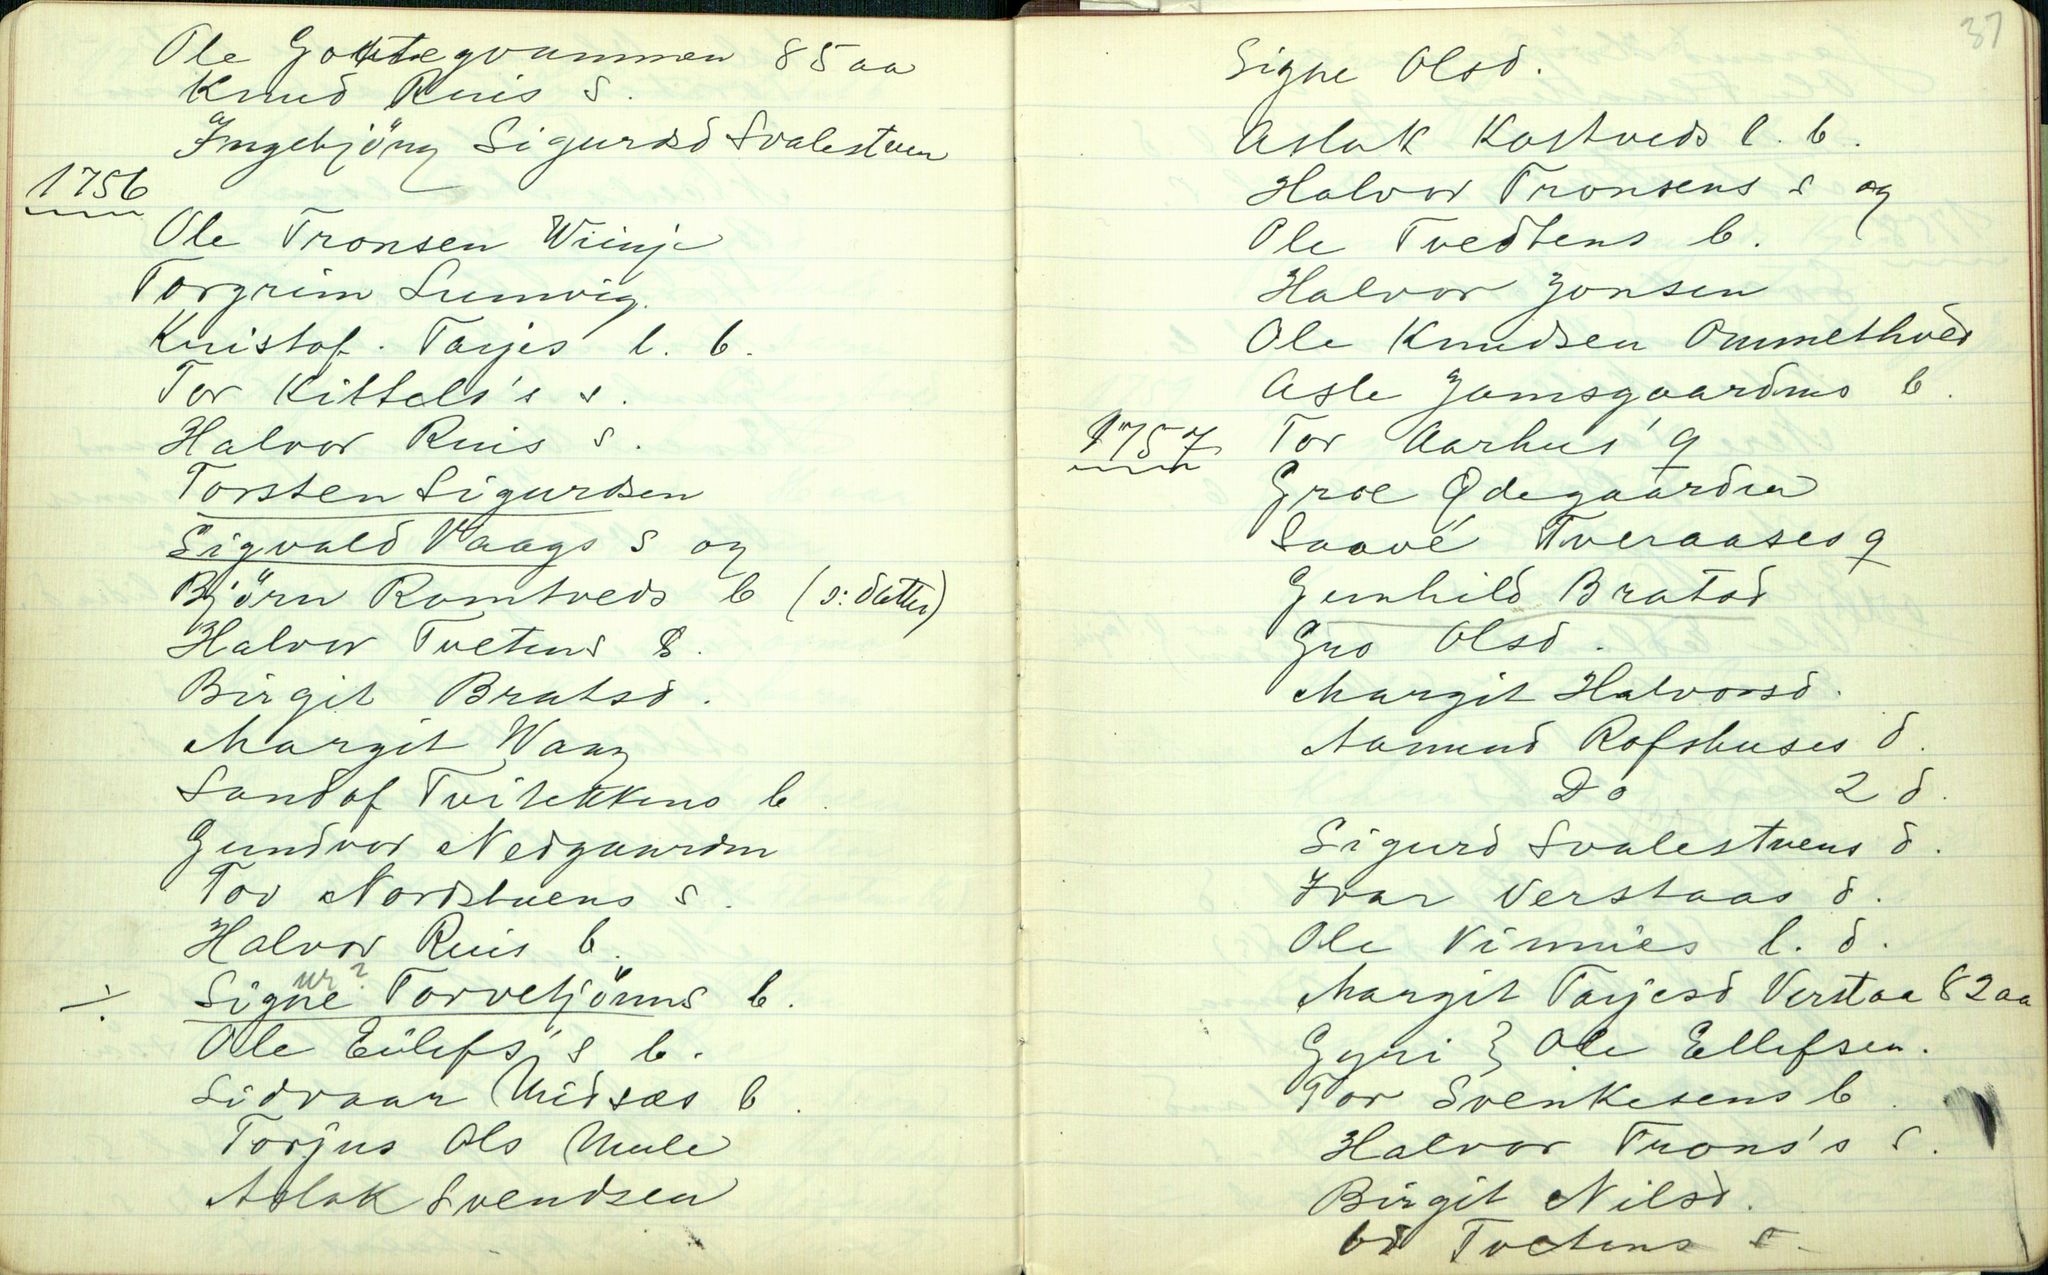 Ole Gottegvammen 85 aa
Knud Ruis s.
Ingebjörg Sigurdsd Svalestuen
1756
Ole Tronsen Wiinje
Torgrim Sumvig.
Kristof. Tarjes l. b.
Tor Kittels's s.
Halvor Ruis s.
Torsten Sigurdsen
Sigvald Vaags s og
Björn Romtveds b (ɔ: datter)
Halvor Tvetens s.
Birgit Bratsd.
Margit Waag
Sondof Tvitekkens b.
Gundvor Nedgaarden
Tov Nordstuens s.
Halvor Ruis b.
÷ Signe Torvetjönns b.
Ole Eilefs's b.
Sidvaar Midsæs b.
Torjus Ols Mule
Aslak Svendsen
37
Signe Olsd.
Aslak Kostveds l. b.
Halvor Tronsens s og
Ole Tvedtens b.
Halvor Jonsen
Ole Knudsen Ommethved
Asle Jamsgaardens b.
1757 Tor Aarhus' q
Groe Ødegaarden
Saave Tveraases q
Gunhild Bratsd
Gro Olsd.
Margit Halvorsd.
Aamund Rofshuses d.
Do 2 d.
Sigurd Svalestuens d.
Ivar Verstaas d.
Ole Vinnies l. d.
Margit Tarjesd Verstaa 82 aa
Gyri } Ole Ellefsen.
Tor Svenkesens b.
Halvor Trons's s.
Birgit Nilsd.
Tvetens s.